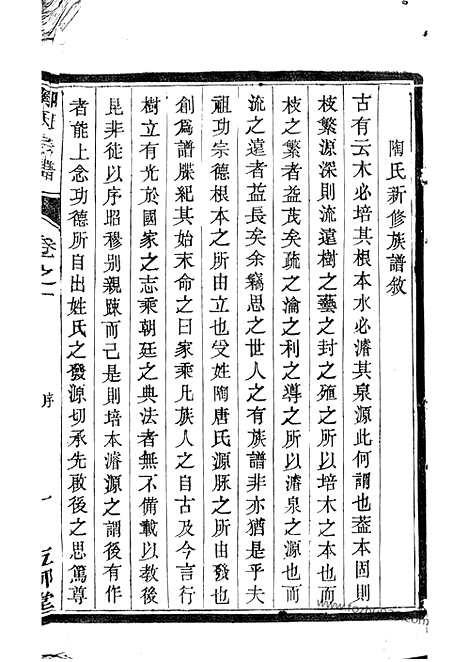 陶氏新修族譜敘
古有云木必培其根本水必濬其泉源此何謂也葢本固則
枝繁源深則流遠樹之藝之封之殖之所以培木之本也而
枝之繁者益茂矣疏之瀹之利之導之所以濬泉之源也而
流之遠者益長矣余竊思之世人之有族譜非亦猶是乎夫
祖功宗德根本之所由立也受姓陶唐氏源脉之所由發也
創爲譜牒紀其始末命之曰家乘凡族人之自古及今言行
樹立有光於國家之志乘朝廷之典法者無不備載以教後
昆非徒以序昭穆别親踈而己是則培本濬源之謂後有作
者能上念功德所自出姓氏之發源切承先啟後之思篤尊
卷之一
序
一